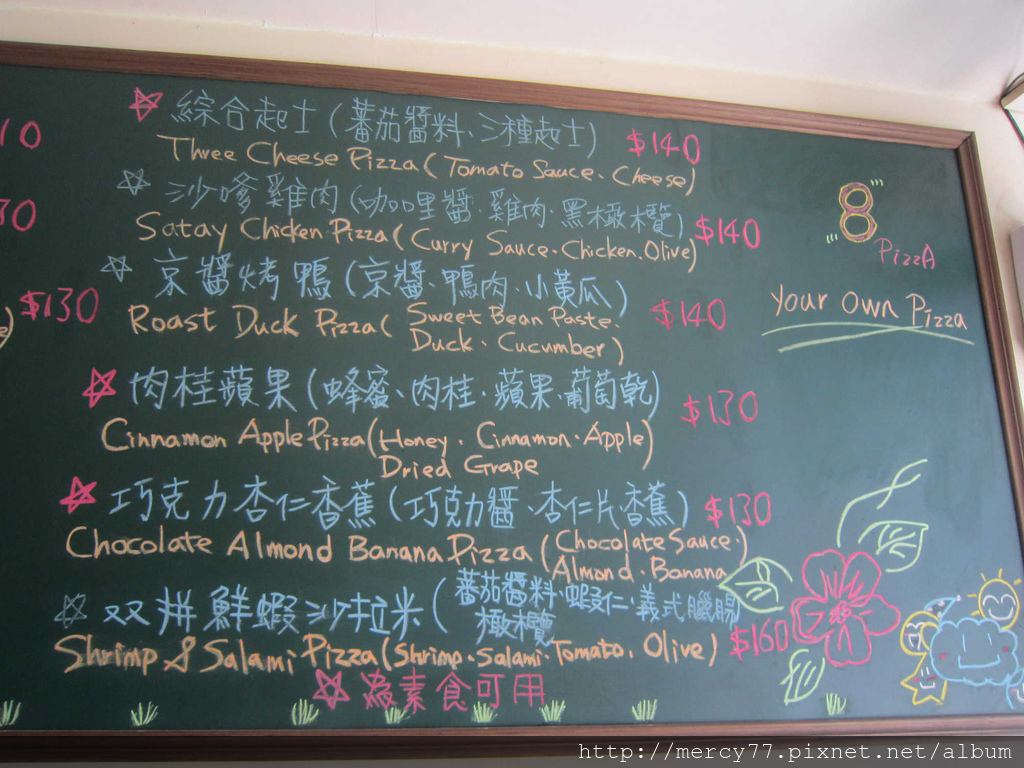 10
☆ 綜合起士(蕃茄醬料、三種起士) $140
Three Cheese Pizza(Tomato Sauce、Cheese)
☆ 沙嗲雞肉(咖哩醬·雞肉·黑橄欖) $140
30
Satay Chicken Pizza(Curry Sauce、Chicken、Olive)
8 PizzA
☆ 京醬烤鴨(京醬、鴨肉·小黃瓜) $140
$130
Roast Duck Pizza(Sweet Bean Paste、
Duck、Cucumber)
Your Own Pizza
☆ 肉桂蘋果(蜂蜜、肉桂·蘋果·葡萄乾) $130
Cinnamon Apple Pizza(Honey、Cinnamon、Apple)
Dried Grape
☆ 巧克力杏仁香蕉(巧克力醬·杏仁片香蕉) $130
Chocolate Almond Banana Pizza(Chocolate Sauce、)
Almond、Banana
☆ 双拼鮮蝦沙拉米(蕃茄醬料·蝦仁·義式臘腸
橄欖 $160
Shrimp & Salami Pizza(Shrimp、Salami、Tomato、Olive)
☆為素食可用
http://mercy77.pixnet.net/album